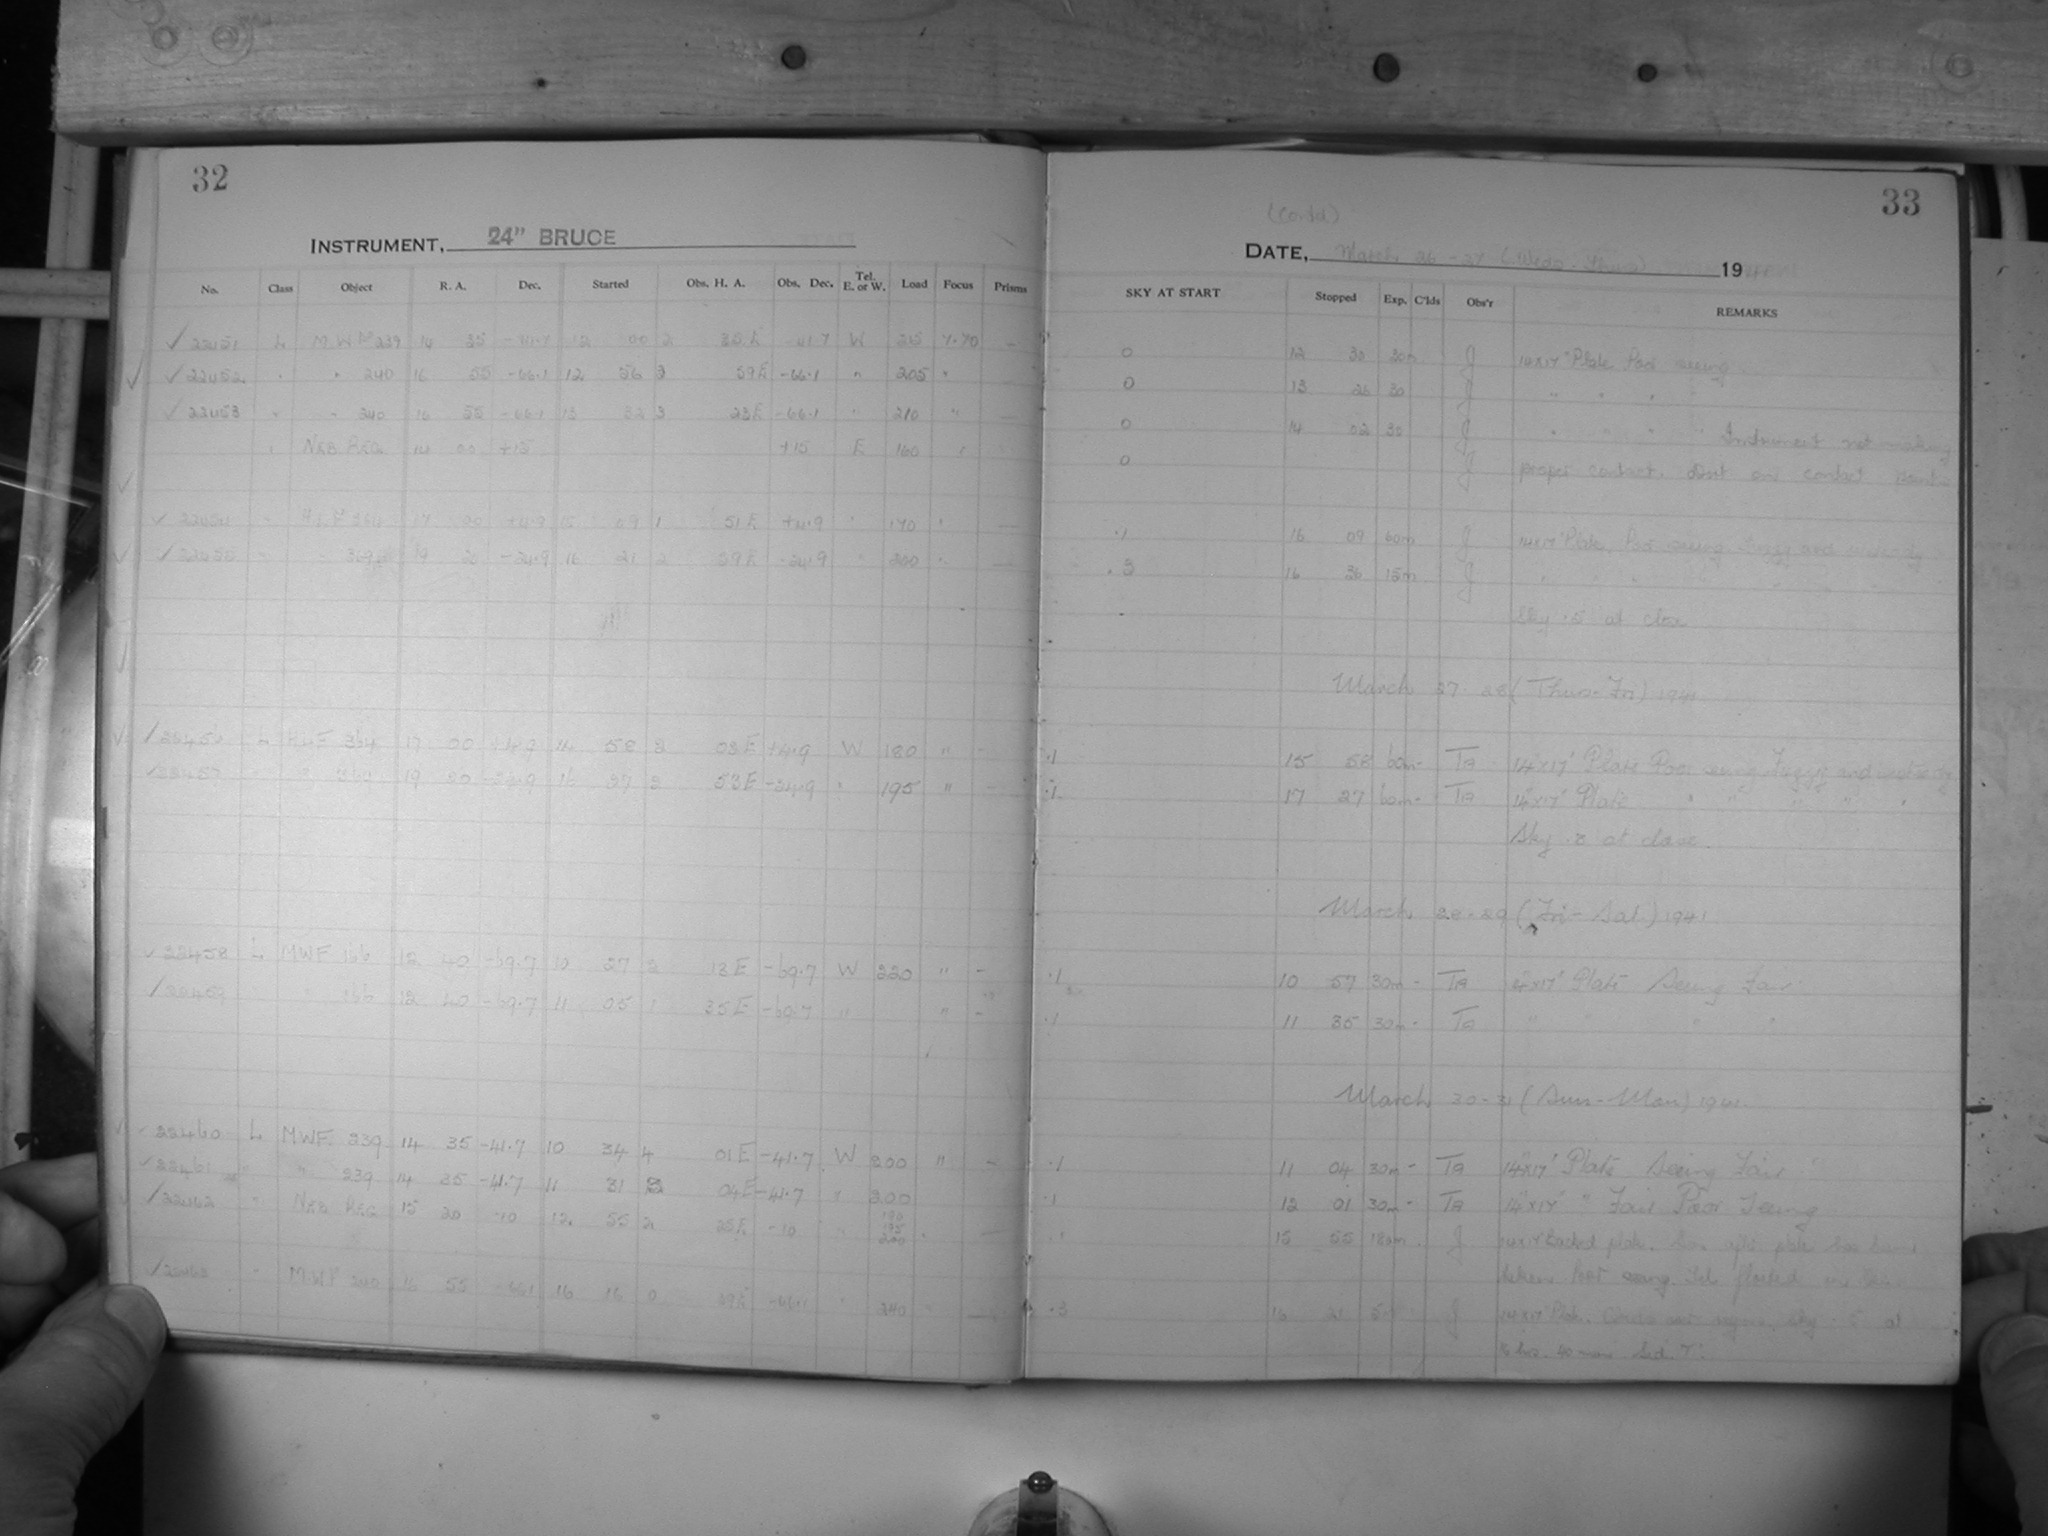 32
INSTRUMENT, 24" BRUCE
No. Class Object R. A. Dec. Started Obs. H. A. Obs. Dec. Tel. E. or W. Load Focus Prisms
✓ 22451 L M.W.F 239 14 35 -41.7 12 00 2 35 E -41.7 W 215 7.70 —
✓ 22452 " " 240 16 55 -66.1 12 56 3 59 E -66.1 " 205 "
✓ 22453 " " 240 16 55 -66.1 13 32 3 23 E -66.1 " 210 " —
" NEB. REG. 14 00 +15 +15 E 160 "
✓ 22454 " 364 17 00 +4.9 15 09 1 51 E +4.9 " 170 " —
✓ 22455 " " 369 19 20 -24.9 16 21 2 59 E -24.9 " 200 " —
✓ 22456 L 364 17 00 +4.9 14 58 2 03 E +4.9 W 180 " -
✓ 22457 " " 369 19 20 -24.9 16 27 2 53 E -24.9 " 195 " -
✓ 22458 L MWF 166 12 40 -69.7 10 27 2 13 E -69.7 W 220 " -
✓ 22459 " " 166 12 40 -69.7 11 05 1 35 E -69.7 " " -
✓ 22460 L MWF. 239 14 35 -41.7 10 34 4 01 E -41.7 W 200 " -
✓ 22461 " " 239 14 35 -41.7 11 31 04 E -41.7 " 200
✓ 22462 " NEB. REG 15 20 -10 12 55 2 25 E -10 " 190 195 200 " —
✓ 22463 " M.W.F 240 16 55 -66.1 16 16 0 39 E -66.1 " 240 " —
33
(Contd)
DATE, March 26-27 (Weds. Thurs) 19
SKY AT START Stopped Exp. C'lds Obs'r REMARKS
0 12 30 30m J 14x17" Plate Poor seeing
0 13 26 30 J " " "
0 14 02 30 J " " " " Instrument not making
0 J proper contact. one contact point
.1 16 09 60m J 14x17" Plate. Poor seeing foggy and
.3 16 36 15m J " " "
Sky .5 at close
March 27-28 (Thurs-Fri) 1941
.1 15 58 60m- TA 14"x17" Plate Poor seeing Foggy and
.1 17 27 60m- TA 14"x17" Plate " " " " "
Sky .2 at close.
March 28-29 (Fri-Sat.) 1941
.1 10 57 30m - TA 14"x17" Plate Seeing Fair
.1 11 35 30m - TA " " " "
March 30-31 (Sun-Mon) 1941
.1 11 04 30m - TA 14"x17" Plate Seeing Fair
.1 12 01 30m - TA 14"x17" " Fair Poor Seeing
.1 15 55 180m J 14x17" Backed plate. plate has been
taken Poor seeing. Tel.
.3 16 21 5 J 14x17" Plate. Clouds Sky .5 at
16 hrs. 40 mins Sid. T.